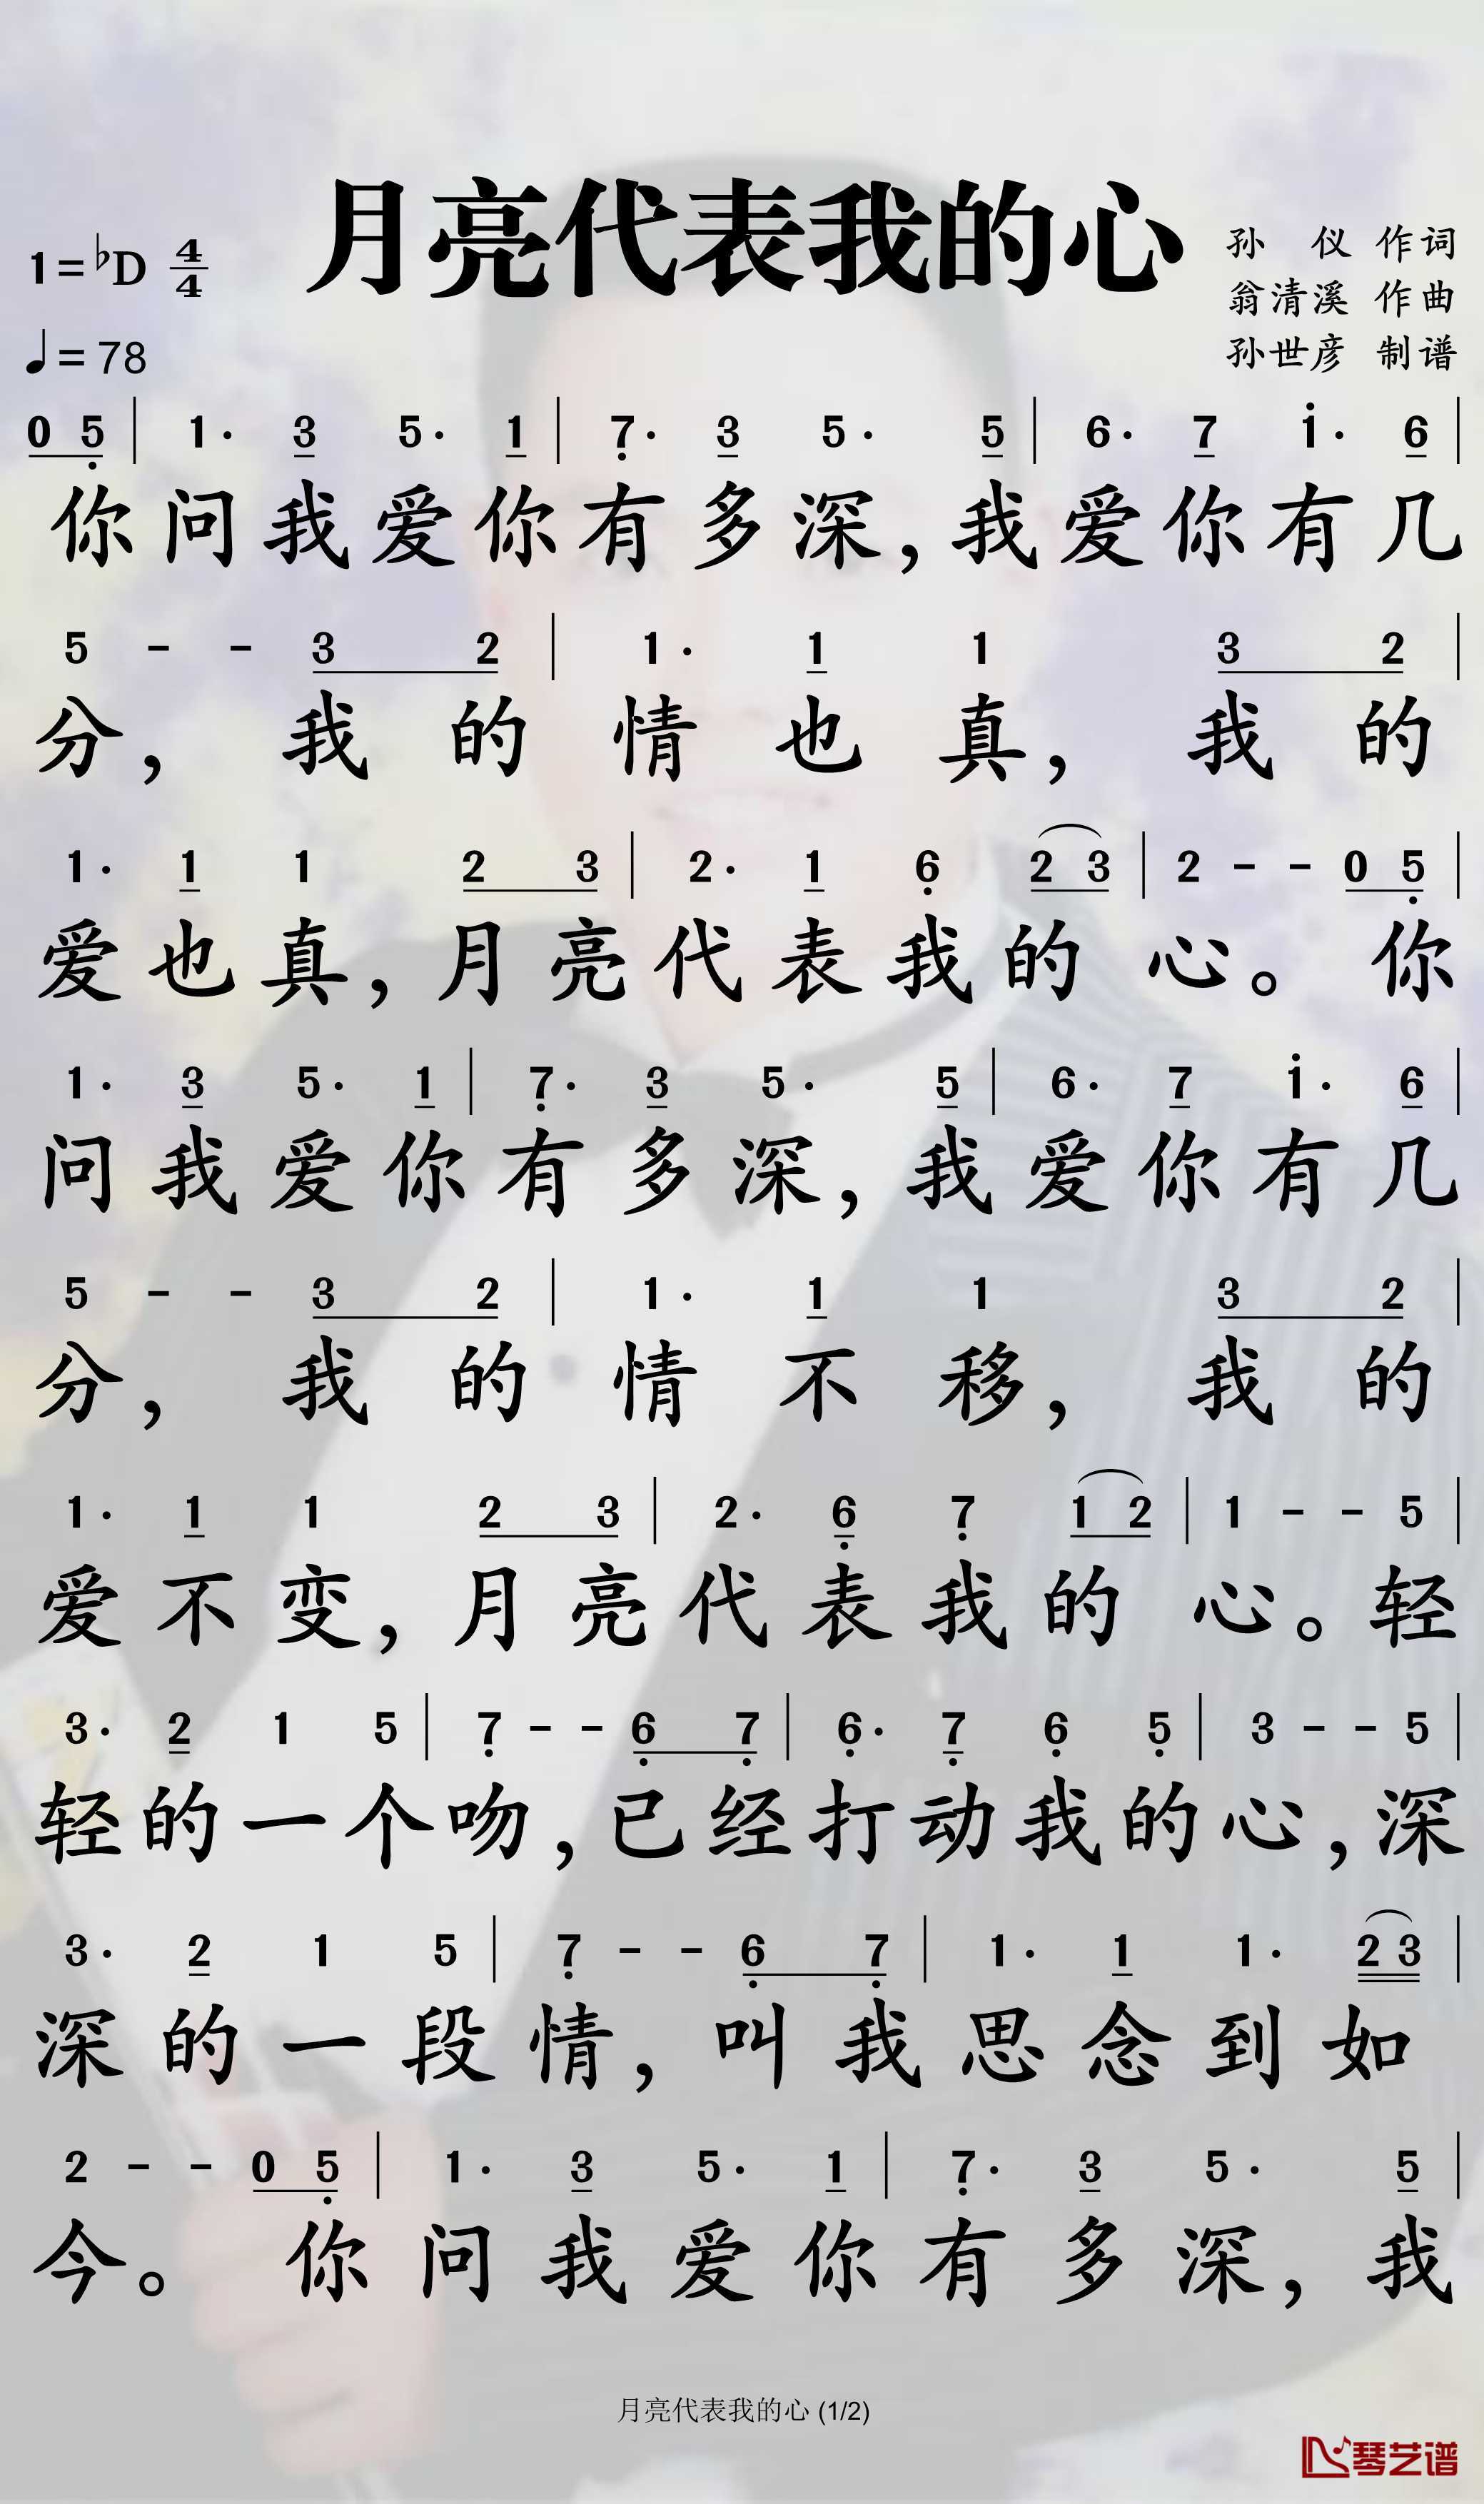 月亮代表我的心
1=♭D 4/4
♩=78
孙 仪 作词
翁清溪 作曲
孙世彦 制谱
0 5̣ | 1· 3 5· 1 | 7̣· 3 5· 5 | 6· 7 1̇· 6 |
你问我爱你有多深，我爱你有几
5 - - 3 2 | 1· 1 1 3 2 |
分，我的情也真，我的
1· 1 1 2 3 | 2· 1 6̣ 2 3 | 2 - - 0 5̣ |
爱也真，月亮代表我的心。你
1· 3 5· 1 | 7̣· 3 5· 5 | 6· 7 1̇· 6 |
问我爱你有多深，我爱你有几
5 - - 3 2 | 1· 1 1 3 2 |
分，我的情不移，我的
1· 1 1 2 3 | 2· 6̣ 7̣ 1 2 | 1 - - 5 |
爱不变，月亮代表我的心。轻
3· 2 1 5 | 7̣ - - 6̣ 7̣ | 6̣· 7̣ 6̣ 5̣ | 3 - - 5 |
轻的一个吻，已经打动我的心，深
3· 2 1 5 | 7̣ - - 6̣ 7̣ | 1· 1 1· 2 3 |
深的一段情，叫我思念到如
2 - - 0 5̣ | 1· 3 5· 1 | 7̣· 3 5· 5 |
今。你问我爱你有多深，我
月亮代表我的心 (1/2)
琴艺谱